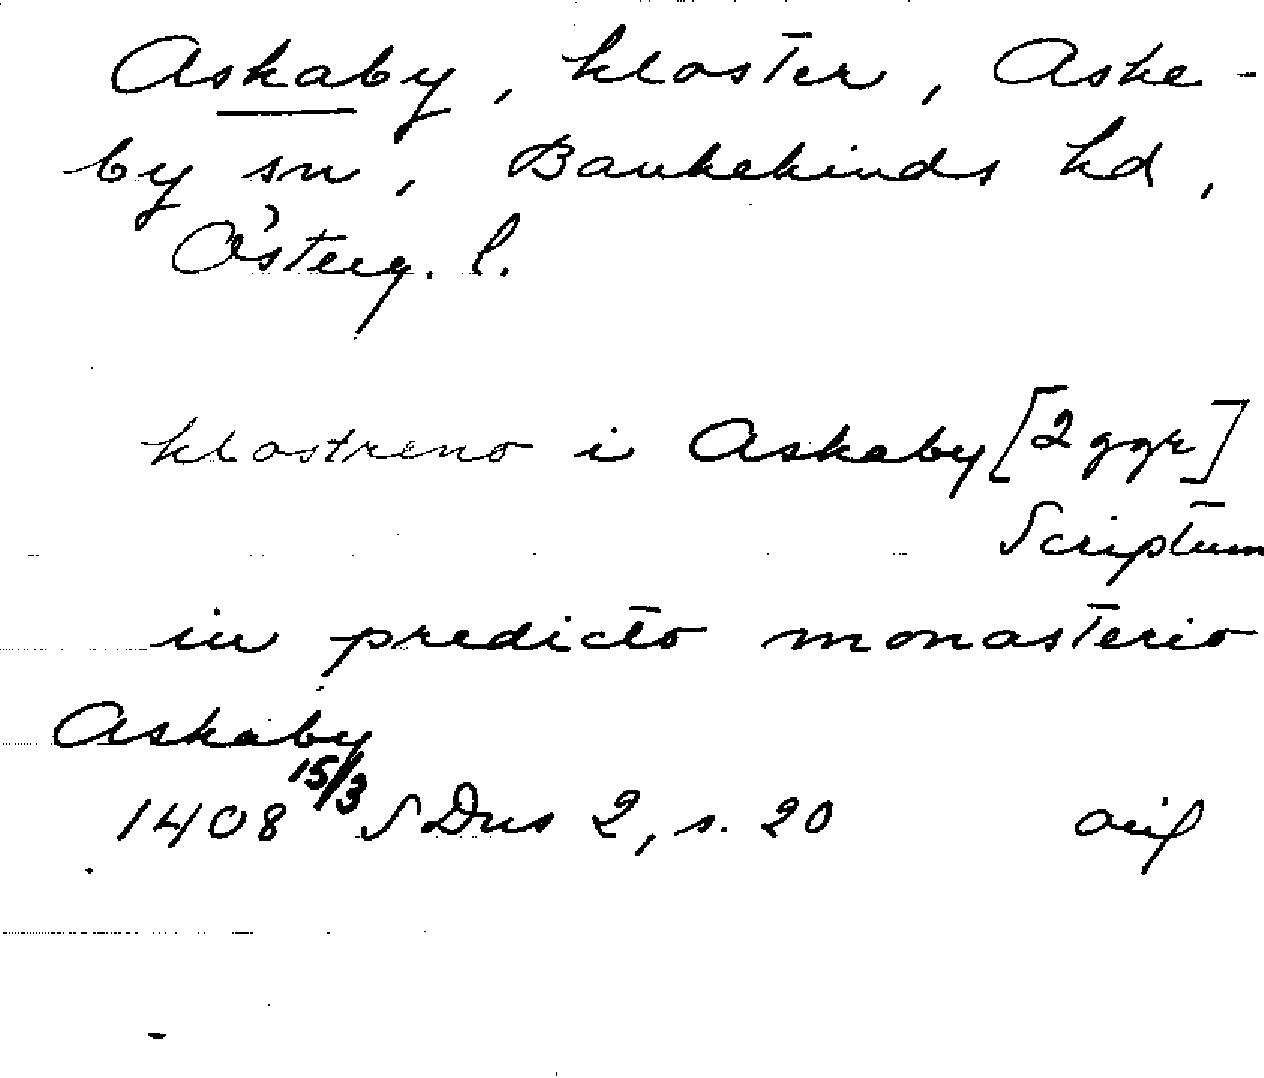 Askaby, kloster, Aske-
by sn, Bankekinds hd,
Österg. l.
klostreno i Askaby [2 ggr]
Scriptum
in predicto monasterio
Askaby
1408 15/3 SDns 2, s. 20 orig